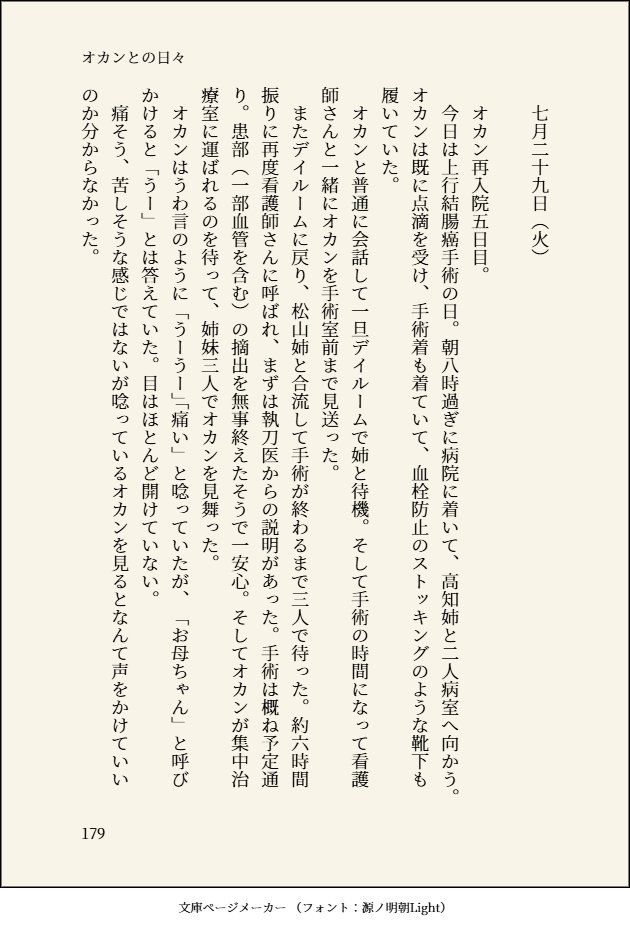 オカンとの日々
七月二十九日（火）
オカン再入院五日目。
今日は上行結腸癌手術の日。朝八時過ぎに病院に着いて、高知姉と二人病室へ向かう。
オカンは既に点滴を受け、手術着も着ていて、血栓防止のストッキングのような靴下も
履いていた。
オカンと普通に会話して一旦デイルームで姉と待機。そして手術の時間になって看護
師さんと一緒にオカンを手術室前まで見送った。
またデイルームに戻り、松山姉と合流して手術が終わるまで三人で待った。約六時間
振りに再度看護師さんに呼ばれ、まずは執刀医からの説明があった。手術は概ね予定通
り。患部（一部血管を含む）の摘出を無事終えたそうで一安心。そしてオカンが集中治
療室に運ばれるのを待って、姉妹三人でオカンを見舞った。
オカンはうわ言のように「うーうー」「痛い」と唸っていたが、「お母ちゃん」と呼び
かけると「うー」とは答えていた。目はほとんど開けていない。
痛そう、苦しそうな感じではないが唸っているオカンを見るとなんて声をかけていい
のか分からなかった。
179
文庫ページメーカー （フォント：源ノ明朝Light）